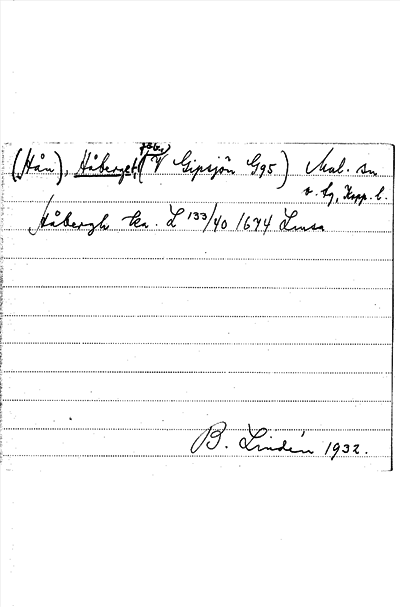 (Hån), Håberget, (V Gipsjön G95) Mal. sn
v. bg, Kopp. l.
Håbergh ka. L 133/40 1674 Lmsa
B. Lindén 1932.